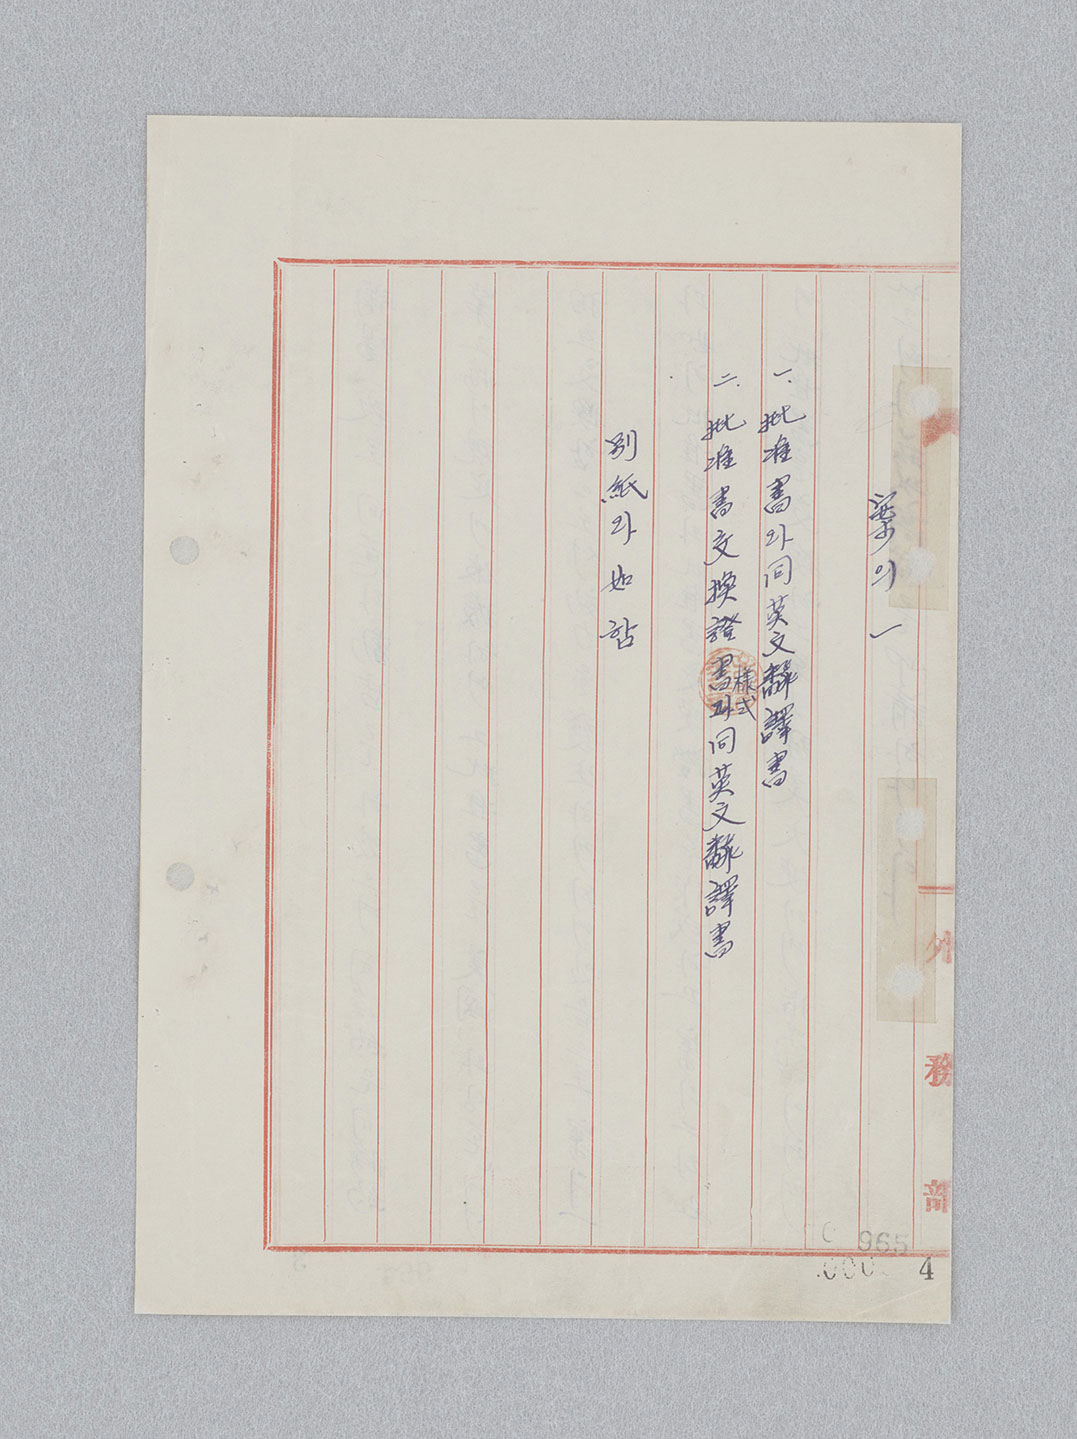 案의 一
一. 批准書와 同英文飜譯書
二. 批准書交換證書樣式과 同英文飜譯書
別紙와 如함
外務部
965
4